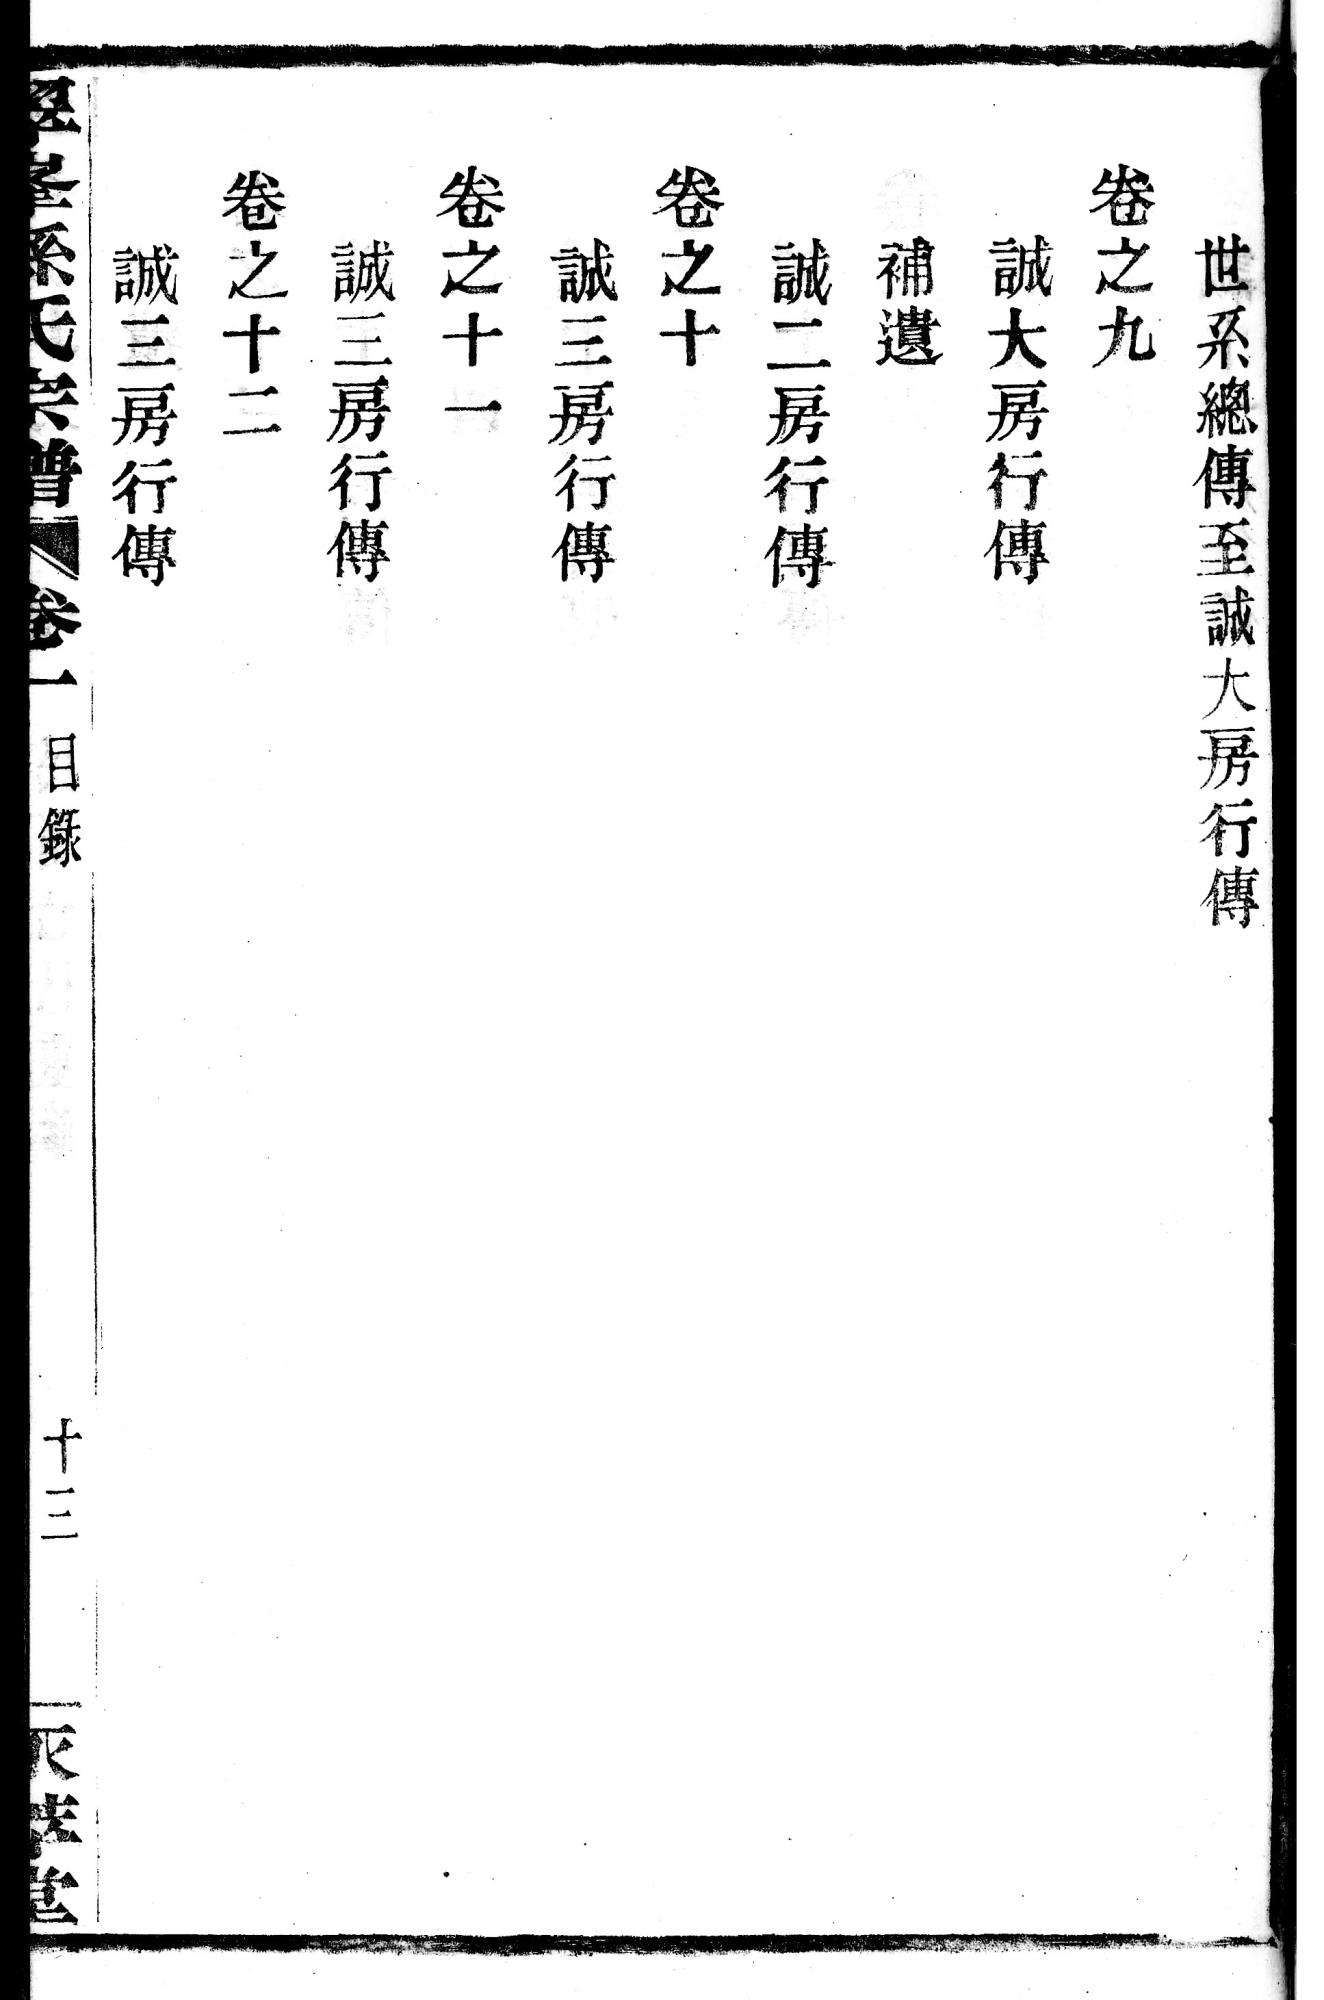 世系總傳至誠大房行傳
卷之九
誠大房行傳
補遺
誠二房行傳
卷之十
誠三房行傳
卷之十一
誠三房行傳
卷之十二
誠三房行傳
孫氏宗譜 卷一 目錄 十三 堂